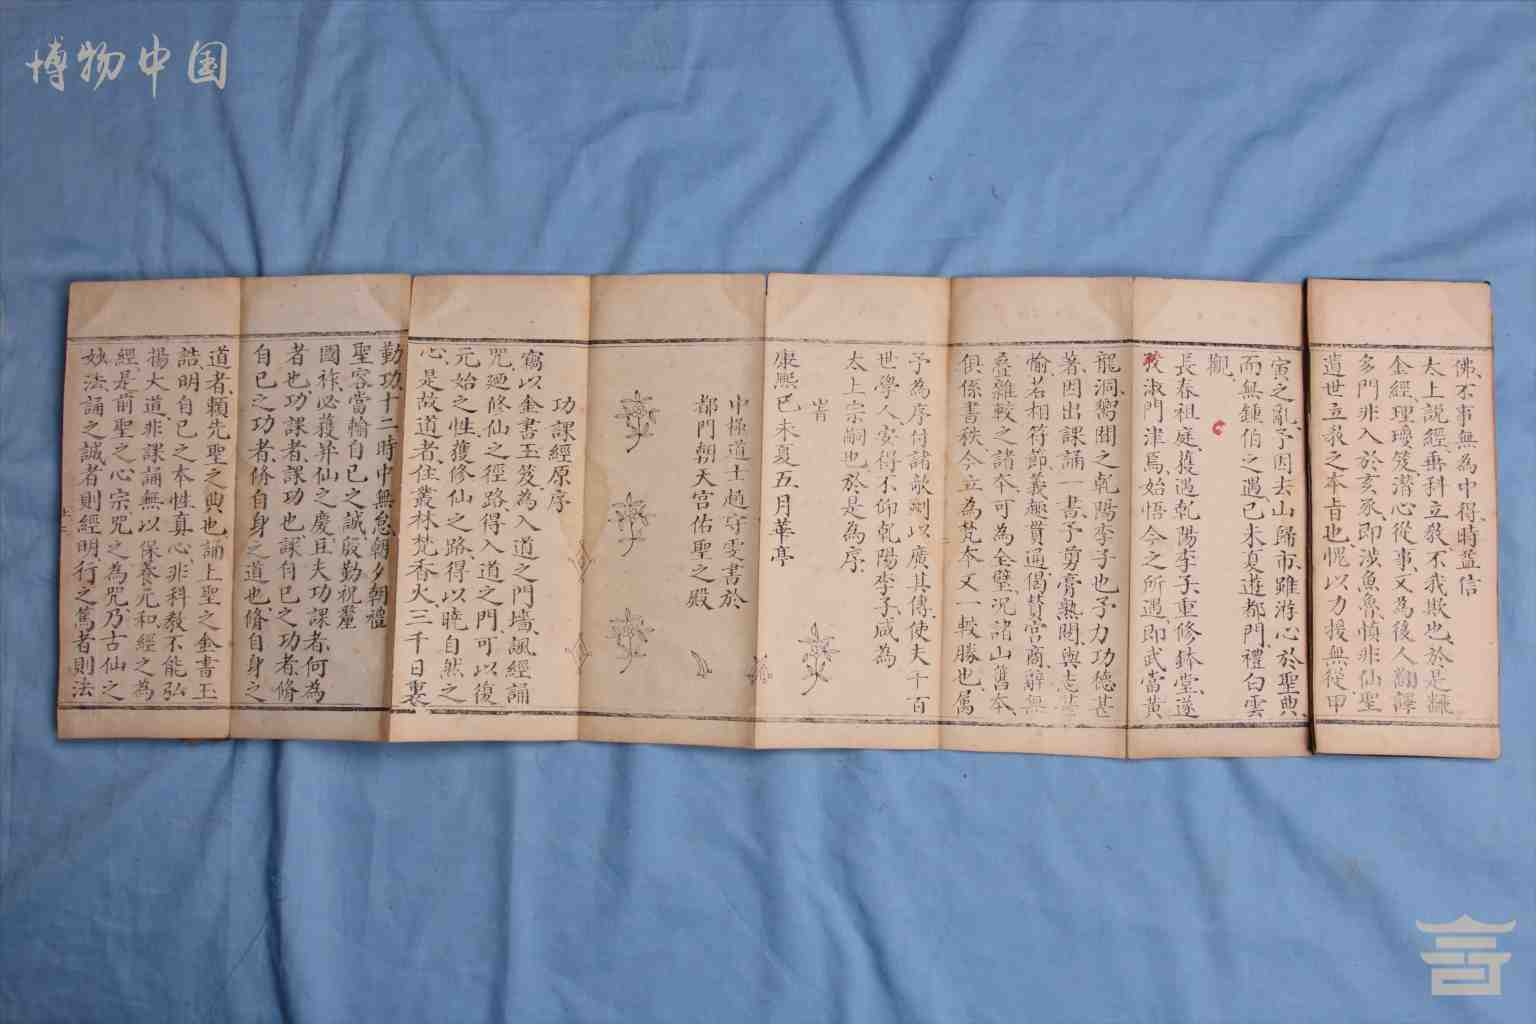 博物中国
佛不事無為中得時益信
太上說經垂科立教不我欺也於是
金經理瓊笈潛心從事又為後人翻譯
多門非入於亥豕即涉魚魯慎非仙聖
遺世立教之本旨也愧以力援無從甲
寅之亂予因去山歸市雖游心於聖典
而無鍾伯之遇己未夏遊都門禮白雲
觀
長春祖庭獲遇乾陽李子重修鉢堂遂
淑門津焉始悟今之所遇即武當黃
龍洞嚮聞之乾陽李子也予力功德甚
著因出課誦一書予剪膏熟閱與志甚
愉若相符節義趣貫通偈賛宮商辭無
叠雜較之諸本可為全璧況諸山舊本
俱係書秩今立為梵本又一較勝也属
予為序付諸歆劂以廣其傳使夫千百
世學人安得不仰乾陽李子咸為
太上宗嗣也於是為序
旹
康熙己未夏五月華亭
中極道士趙守雯書於
都門朝天宮佑聖之殿
功課經原序
竊以金書玉笈為入道之門墻諷經誦
咒廼修仙之徑路得入道之門可以復
元始之性獲修仙之路得以曉自然之
心是故道者住叢林梵香火三千日裏
勤功十二時中無怠朝夕朝禮
聖容當輸自己之誠殷勤祝釐
國祚必獲昇仙之慶且夫功課者何為
者也功課者課功也課自己之功者脩
自己之功者脩自身之道也脩自身之
道者賴先聖之典也誦上聖之金書玉
誥明自己之本性真心非科教不能弘
揚大道非課誦無以保養元和經之為
經是前聖之心宗咒之為咒乃古仙之
妙法誦之誠者則經明行之篤者則法